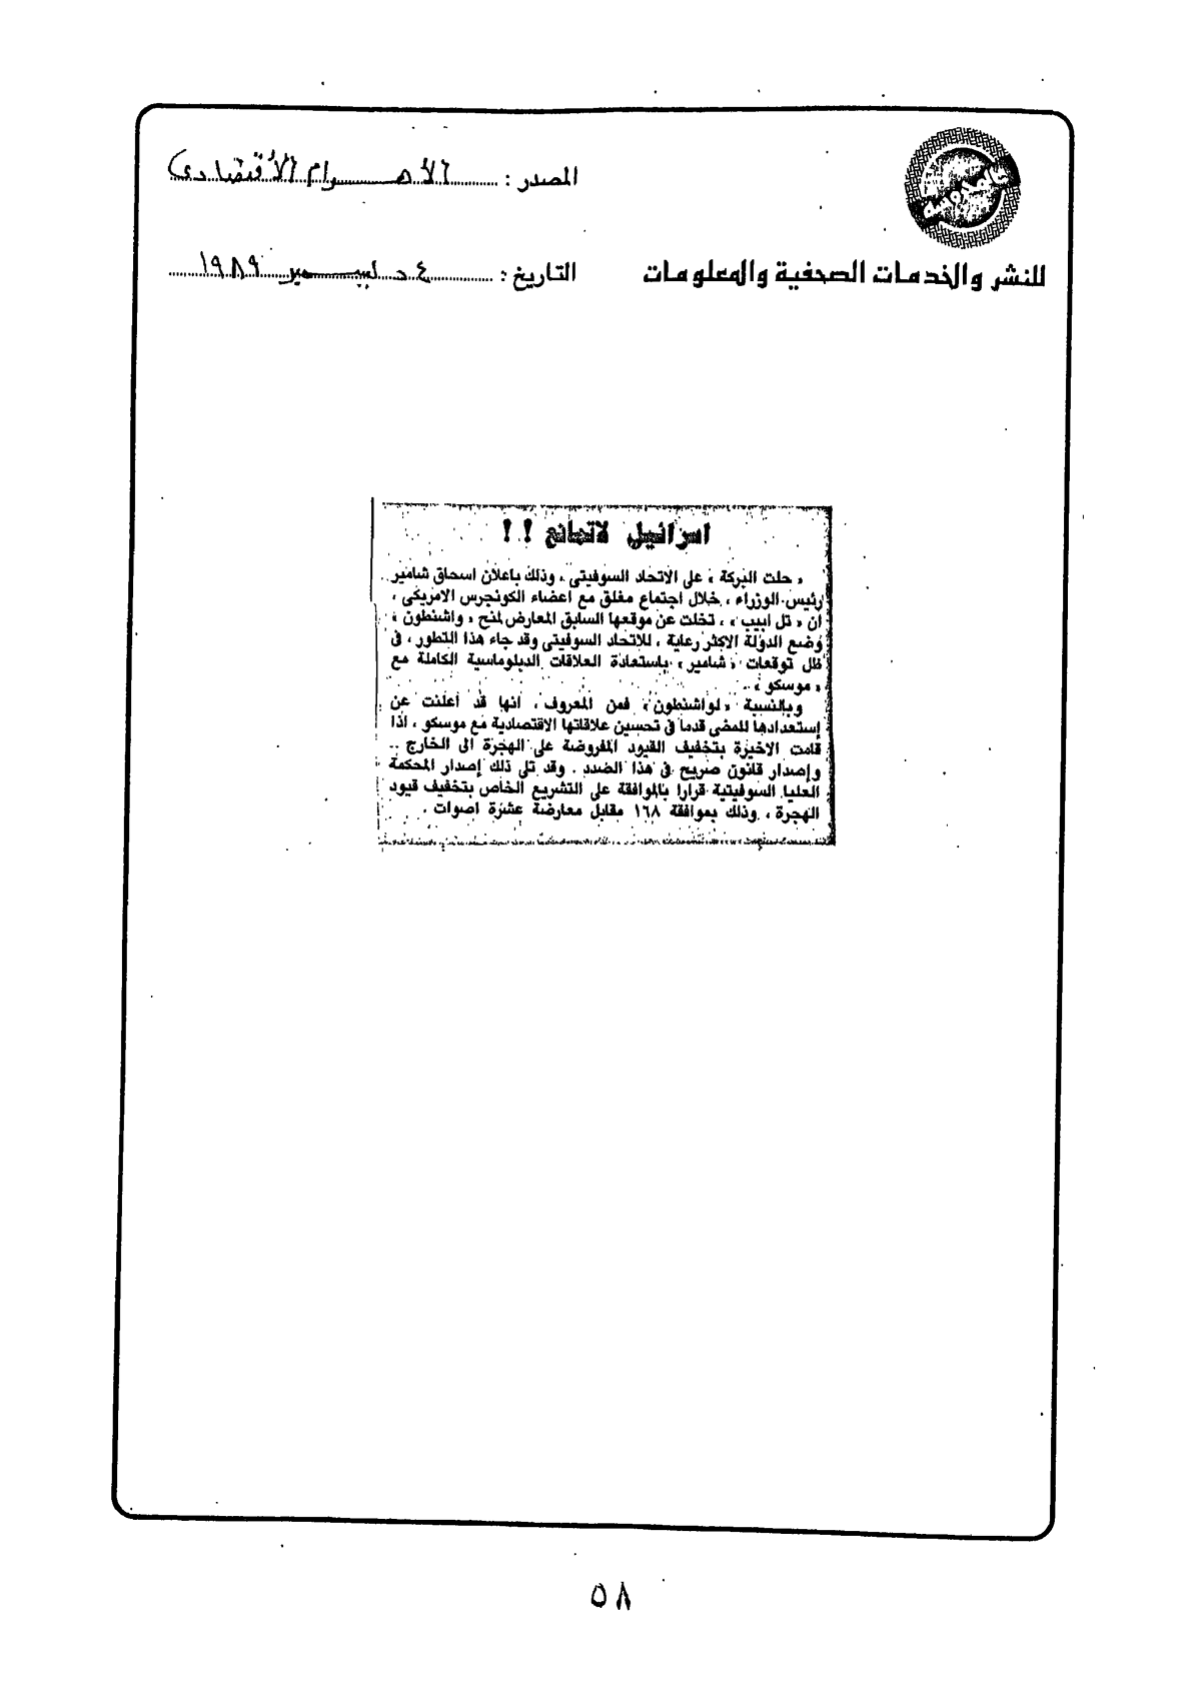 المصدر : الأهرام الاقتصادى
للنشر والخدمات الصحفية والمعلومات
التاريخ : ٤ ديسمبر ١٩٨٩
اسرائيل لاتمانع ! !
« حلت البركة » على الاتحاد السوفيتى ، وذلك باعلان اسحاق شامير
رئيس الوزراء ، خلال اجتماع مغلق مع اعضاء الكونجرس الامريكى ،
ان « تل ابيب » ، تخلت عن موقعها السابق المعارض لمنح « واشنطون »
وضع الدولة الاكثر رعاية ، للاتحاد السوفيتى وقد جاء هذا التطور ، فى
ظل توقعات « شامير » باستعادة العلاقات الدبلوماسية الكاملة مع
« موسكو » ..
وبالنسبة « لواشنطون » فمن المعروف ، انها قد أعلنت عن
إستعدادها للمضى قدما فى تحسين علاقاتها الاقتصادية مع موسكو ، اذا
قامت الاخيرة بتخفيف القيود المفروضة على الهجرة الى الخارج ..
وإصدار قانون صريح فى هذا الصدد . وقد تلى ذلك إصدار المحكمة
العليا السوفيتية قرارا بالموافقة على التشريع الخاص بتخفيف قيود
الهجرة ، وذلك بموافقة ١٦٨ مقابل معارضة عشرة اصوات .
٥٨